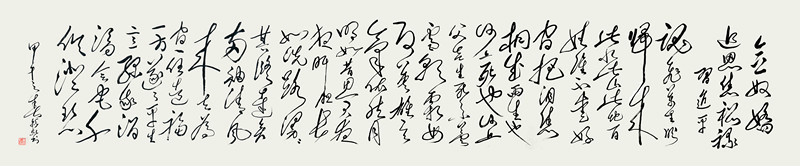 念奴嬌
追思焦裕禄
習近平
魂飛萬里盼
歸來
此水此山此地百
姓誰不愛好
官把淚焦
桐成雨生也
沙丘死也沙丘
父老生死系暮
雪朝霜毋
改英雄意
氣依然月
明如昔思君夜
夜肝膽長
如洗路漫漫
其修遠矣
兩袖清風
來去為
官一任造福
一方遂了平生
意綠我涓
滴會它千
頃澄碧
甲午